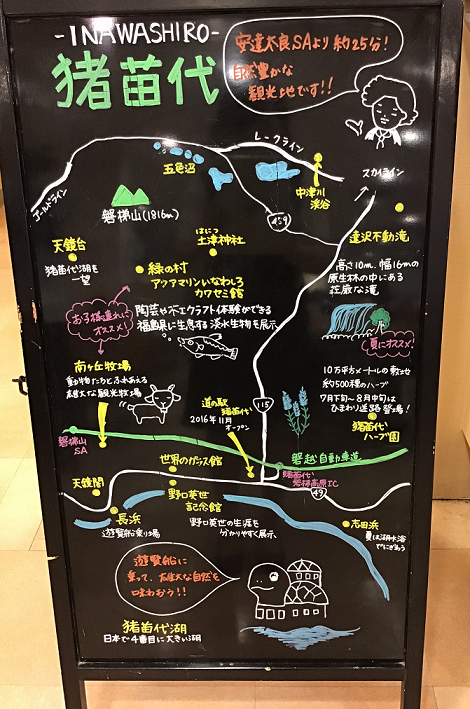 -INAWASHIRO-
猪苗代
安達太良SAより約25分!
自然豊かな
観光地です!!
レークライン
五色沼
スカイライン
中津川
渓谷
ゴールドライン
磐梯山(1816m)
459
達沢不動滝
はにつ
土津神社
天鏡台
猪苗代湖を
一望
緑の村
アクアマリンいなわしろ
カワセミ館
高さ10m、幅16mの
原生林の中にある
荘厳な滝
陶芸や木工クラフト体験ができる
福島県に生息する淡水生物を展示
お子様連れに
オススメ!
夏にオススメ!
南ヶ丘牧場
動物たちとふれあえる
雄大な観光牧場
10万平方メートルの敷地
約500種のハーブ
7月下旬〜8月中旬は
ひまわり迷路登場!
道の駅
猪苗代
2016年11月
オープン
115
猪苗代
ハーブ園
磐梯山
SA
磐越自動車道
世界のガラス館
猪苗代
磐梯高原IC
天鏡閣
49
野口英世
記念館
長浜
遊覧船乗り場
野口英世の生涯を
分かりやすく展示
志田浜
夏は湖水浴
でにぎわう
遊覧船に
乗って、雄大な自然を
味わおう!!
猪苗代湖
日本で4番目に大きい湖